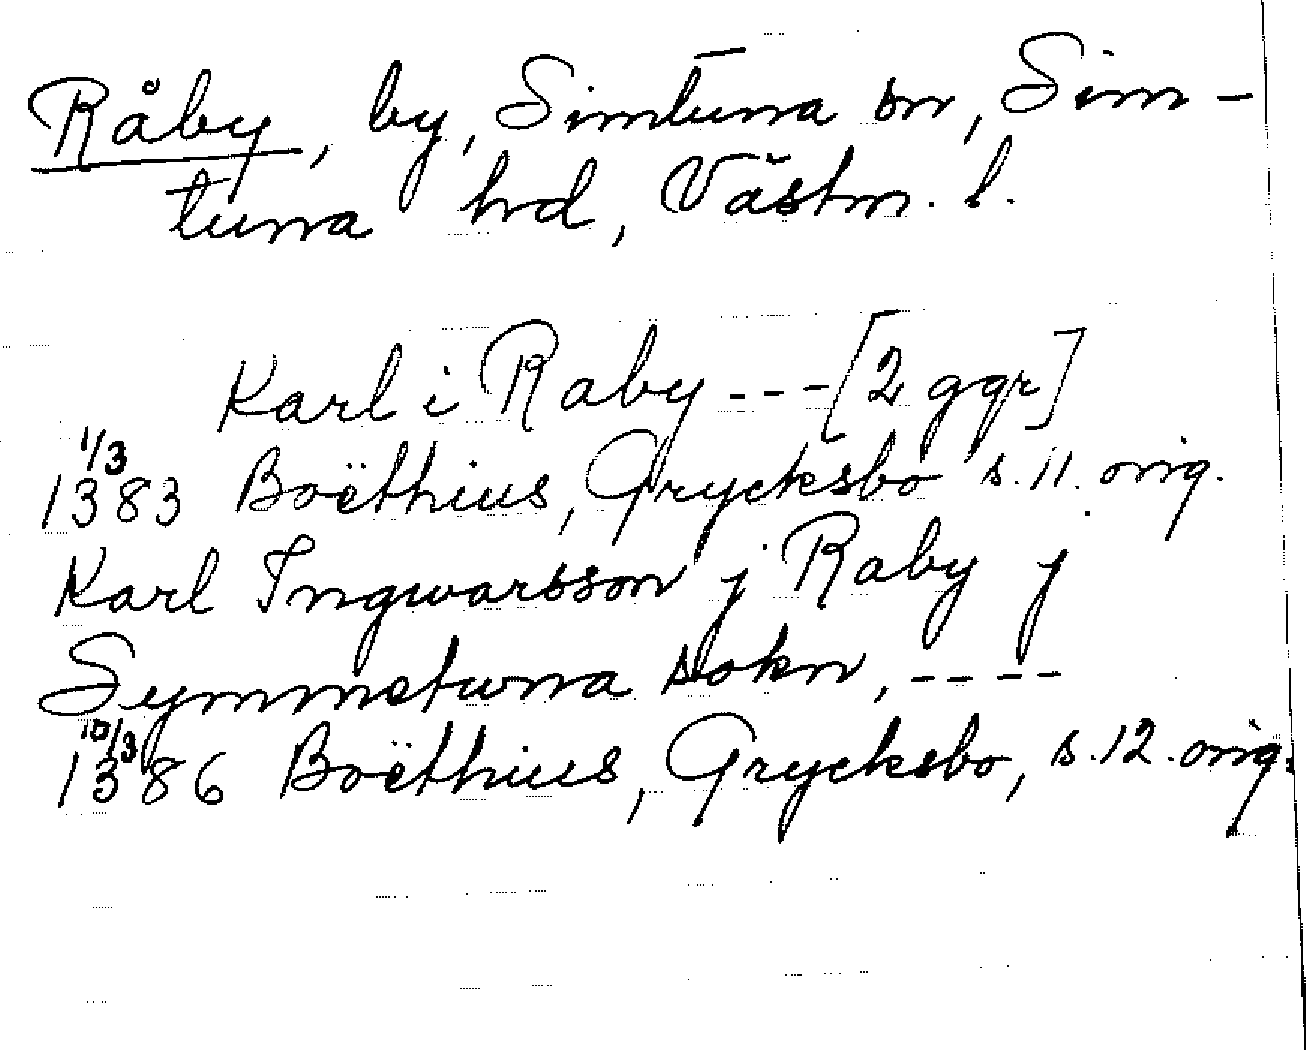 Råby, by, Simtuna sn, Sim-
tuna hd, Västm. l.
Karl i Raby --- [2 ggr]
1/3
1383 Boëthius, Grycksbo s. 11. orig.
Karl Ingwarsson j Raby j
Symmetuna sokn, ----
10/3
1386 Boëthius, Grycksbo, s. 12. orig.